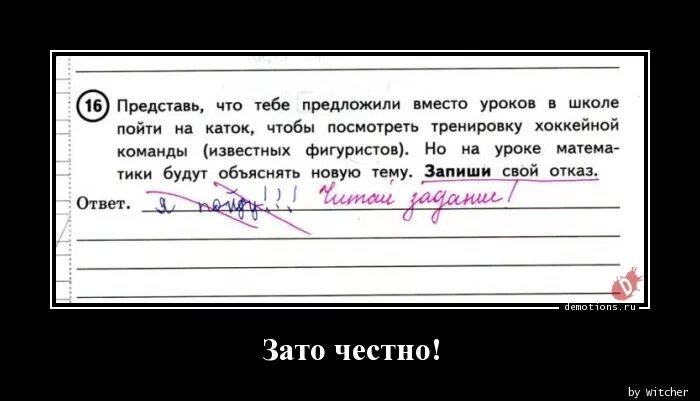 16 Представь, что тебе предложили вместо уроков в школе
пойти на каток, чтобы посмотреть тренировку хоккейной
команды (известных фигуристов). Но на уроке матема-
тики будут объяснять новую тему. Запиши свой отказ.
Ответ. я пойду!!! Читай задание!
demotions.ru
Зато честно!
by Witcher